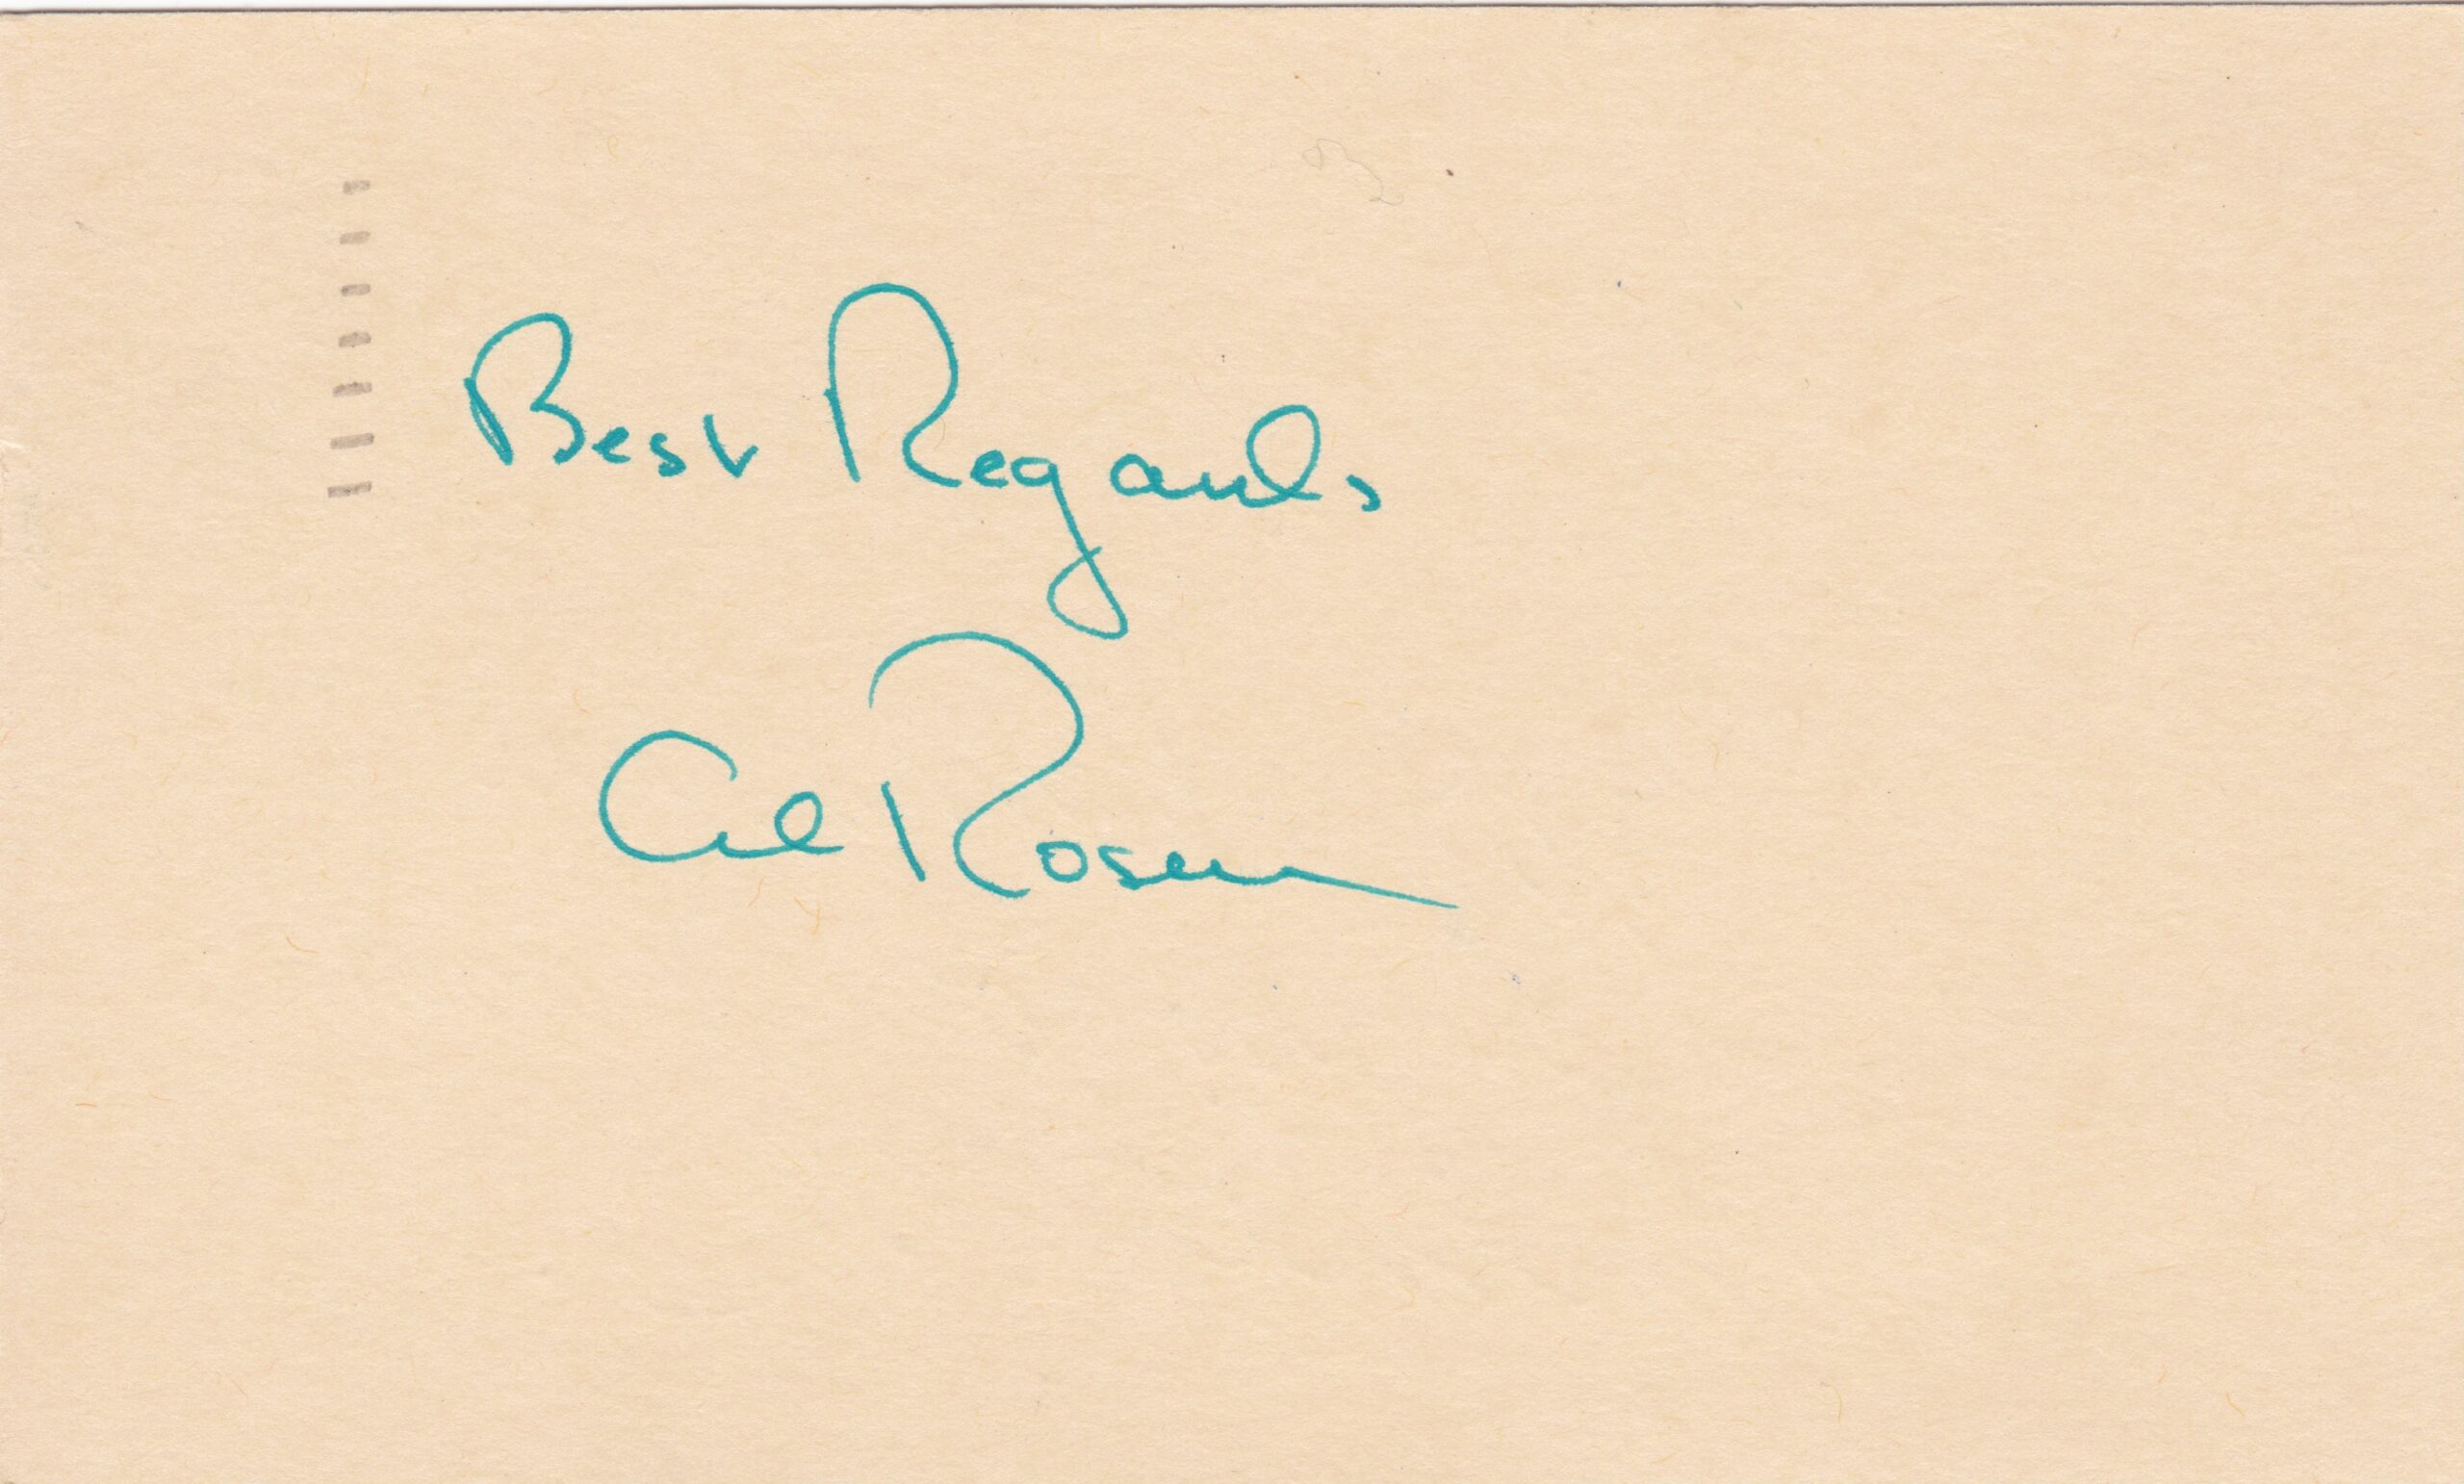 Best Regards
Al Rosen